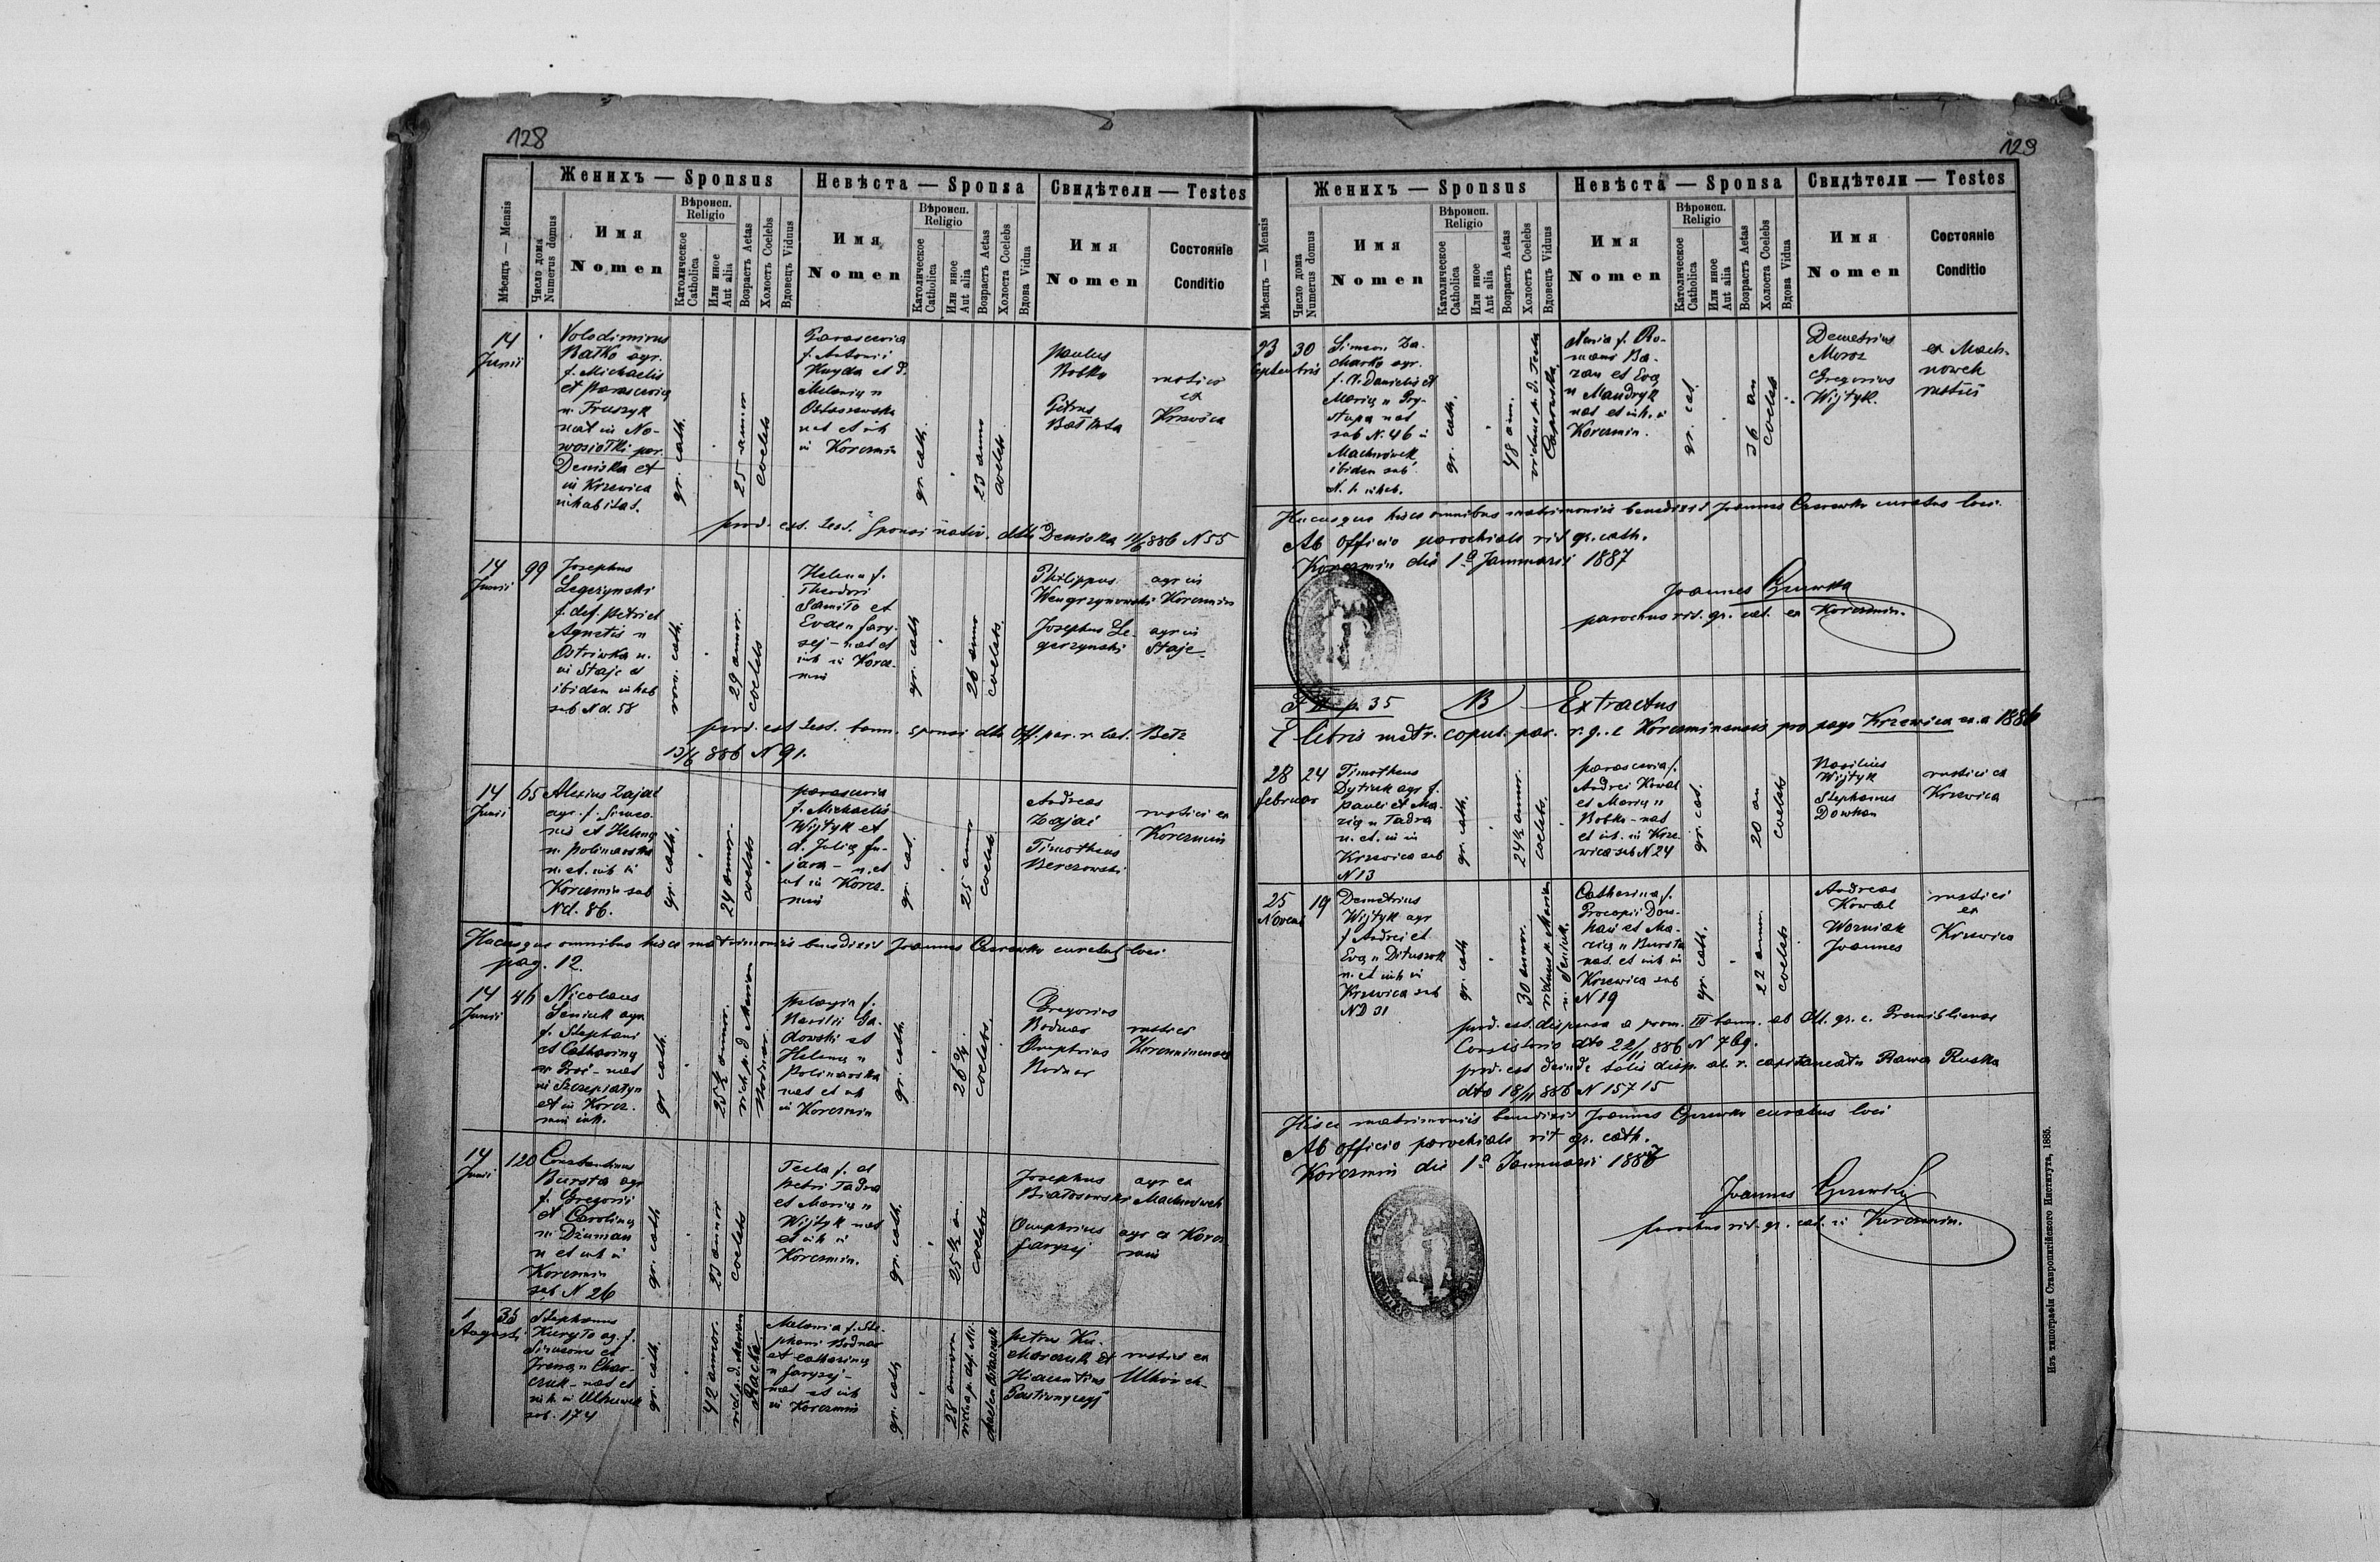 128
Женихъ — Sponsus
Невѣста — Sponsa
Свидѣтели — Testes
Мѣсяцъ — Mensis
Число дома
Numerus domus
Имя
Nomen
Вѣроисп.
Religio
Католическое
Catholica
Или иное
Aut alia
Возрастъ Aetas
Холостъ Coelebs
Вдовецъ Viduus
Имя
Nomen
Вѣроисп.
Religio
Католическое
Catholica
Или иное
Aut alia
Возрастъ Aetas
Холоста Coelebs
Вдова Vidua
Имя
Nomen
Состоянiе
Conditio
14
Junii
Volodimirus
Batko agr.
f. Michaelis
et Parascevia
n. Truszyk
nat in No-
wosiołki par.
Deniska et
in Krzewica
inhabitat.
gr. cath.
25 annor
coelebs
Parascevia
f. Antonii
Huyda et d.
Melania n
nat et inh
in Korczmin
gr. cath.
23 anno
coelebs
Paulus
Bobko
Petrus
rustici
ex
Krzewica
prod. est. test. Sponsi nativ. dtto Deniska 11/6 886 N 55
14
Junii
99
Josephus
Legerzynski
f. def. Petri et
Agnetis n
Ostriwka n.
in Staje et
ibidem inhab
sub Nd. 58
rom. cath.
29 annor.
coelebs
Helena f.
Theodori
Samiło et
Evae n Jary-
sej - nat et
inh in Korcz-
min
gr. cath
26 anno
coelebs
Philippus
Wengrzynowski
agr in
Korczmin
Josephus Le-
gerzynski
agr in
Staje
prod. est test. bann. sponsi dtto Off. par. r. lat. Bełz
13/6 886 N 91.
14
Junii
65
Alexius Zajac
agr. f. Simeo-
nis et Helena
n. Polinarska
n. et. inh in
Korczmin sub
Nd. 86.
gr. cath.
24 annor.
coelebs
Parascevia
f. Michaelis
Wijtyk et
d. Julia Fu-
jara - n. et
inh in Korcz-
min
gr. cat.
25 anno
coelebs
Andreas
Zajac
Timotheus
Berezowski
rustici ex
Korczmin
Hucusque omnibus hisce matrimoniis benedixit Joannes Czerewko curatus loci
pag. 12.
14
Junii
46
Nicolaus
Seniuk agr
f. Stephani
et Catharina
n Proć - nat
in Szczepiatyn
et in Korcz-
min inh.
gr cath.
25½ annor.
vid. p. d Marian
Bodnar
Pelagia f.
Basilii Sa-
dowski et
Helena n
Polinarska
nat et inh
in Korczmin
gr. cath.
26¾
coelebs.
Gregorius
Bodnar
Onuphrius
Bodnar
rustici
Korczminenses
14
Junii
120
Constantinus
Bursta agr
f. Gregorii
et Carolina
n Dziuman
n et inh in
Korczmin
sub N 26
gr. cath
23 annor
coelebs
Tecla f. d
Petri Tadra
et Maria n
Wijtyk nat
et inh in
Korczmin.
gr. cath.
25½ an.
coelebs
Josephus
Białosowski
agr ex
Machnówek
Onuphrius
Jarysej
agr ex Korcz-
min
1
Augusti
35
Stephanus
Kuryło ag. f.
Simeonis et
Irena n Char-
czuk - nat et
inh in Ulhówek
sub. 174
gr. cath.
42 annor.
vid. p. d. Marian
Melania f. Ste-
phani Bodnar
et Catharina
n Jarysej -
nat et inh
in Korczmin
gr. cath
28 annor
vidua p. def. Mi-
Petrus Ku-
charczuk et
Hiacentus
rustici ex
Ulhówek
129
Женихъ — Sponsus
Невѣста — Sponsa
Свидѣтели — Testes
Мѣсяцъ — Mensis
Число дома
Numerus domus
Имя
Nomen
Вѣроисп.
Religio
Католическое
Catholica
Или иное
Aut alia
Возрастъ Aetas
Холостъ Coelebs
Вдовецъ Viduus
Имя
Nomen
Вѣроисп.
Religio
Католическое
Catholica
Или иное
Aut alia
Возрастъ Aetas
Холоста Coelebs
Вдова Vidua
Имя
Nomen
Состоянiе
Conditio
23
Septembris
30
Simeon Za-
charko agr.
f. Danielis et
Maria n Pry-
stupa nat
sub N. 46 in
Machnówek
ibidem sub
N. 1. inhab.
gr. cath.
48 ann.
viduus p. d. Tecla
Anna f. Ro-
mani Ba-
ran et Eva
n Mandryk
nat et inh. in
Korczmin.
gr. cat.
36 an
coelebs
Demetrius
Moroz
Gregorius
Wijtyk.
ex Mach-
nówek
rustici
Hucusque hisce omnibus matrimoniis benedixit Joannes Czerewko curatus loci.
Ab Officio parochiale rit gr. cath.
Korczmin die 1ª Januarii 1887
Joannes Czerewko
parochus rit. gr. cat. ex Korczmin.
p. 35
B
Extractus
E libris metr. copul. par. r. g. c Korczminensis pro pago Krzewica ex. a 1886
28
Februar
24
Timotheus
Dytiuk agr f.
Pauli et Ma-
ria n Tadra
n. et. in in
Krzewica sub
N 13
gr. cath.
24½ annor.
coelebs.
Parascevia f.
Andrei Kowal
et Maria n
Bobko - nat
et inh. in Krze-
wica sub N 24
gr. cat.
20 an
coelebs
Basilius
Wijtyk
Stephanus
Dowhan
rustici ex
Krzewica
25
Novem
19
Demetrius
Wijtyk agr
f Andrei et
Eva n Dituszok
n. et inh in
Krzewica sub
ND 31
gr. cath
30 annor.
viduus p. Marian
n. Seniuk.
Catharina f.
Procopii Dow-
han et Ma-
ria n Bursta
nat. et inh in
Krzewica sub
N 19
gr. cath.
22 annor.
coelebs
Andreas
Kowal
Wozniak
Joannes
rustici
ex
Krzewica
prod. est. dispensa a prom. III bann. ab Off. gr. c. Premisliense
Consistorio dto 22/11 886 N 769.
prod. est deinde talis disp. ab r. capitaneatu Rawa Ruska
dto 18/11 886 N 15715
Hisce matrimoniis benedixit Joannes Czerewko curatus loci
Ab officio parochiale rit gr. cath.
Korczmin die 1ª Januarii 1887
Joannes Czerewko
parochus rit. gr. cat. in Korczmin.
Изъ типографiи Ставропигiйского Института, 1885.